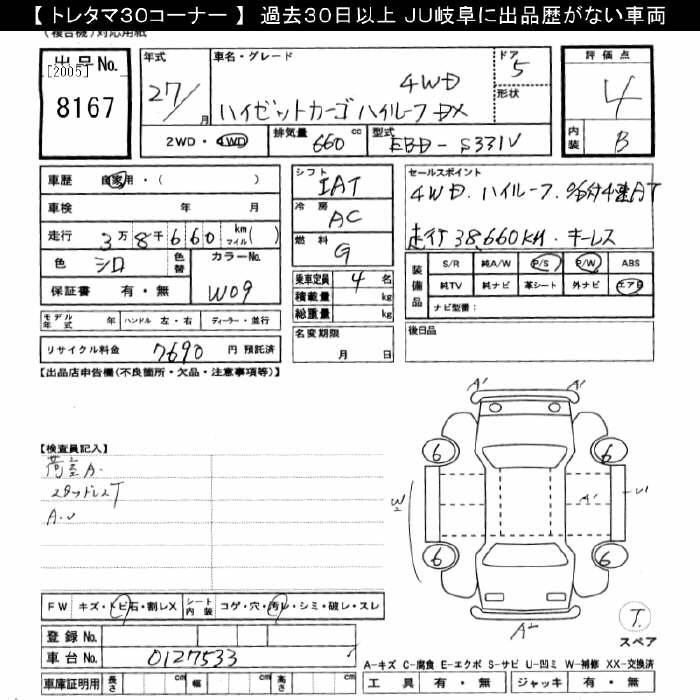 【トレタマ30コーナー】 過去30日以上 JU岐阜に出品歴がない車両
(複合機)対応用紙
出品No. [2005] 8167
年式 27/ 月
車名・グレード 4WD ハイゼットカーゴ ハイルーフ DX
ドア 5 形状
評価点 4
内装 B
2WD・4WD 排気量 660 cc 型式 EBD-S331V
車歴 自家用・( )
車検 年 月
走行 3万8千660 km マイル( )
色 シロ 色替 カラーNo. W09
保証書 有・無
シフト IAT
冷房 AC
燃料 G
乗車定員 4 名
積載量 kg
総重量 kg
名変期限 月 日
セールスポイント
4WD. ハイルーフ.
走行38,660KM. キーレス
装備品 S/R 純A/W P/S P/W ABS
純TV 純ナビ 革シート 外ナビ エアB
ナビ型番:
後日品
モデル年式 年 ハンドル 左・右 ディーラー・並行
リサイクル料金 7690 円 預託済
【出品店申告欄(不良箇所・欠品・注意事項等)】
【検査員記入】
荷室A.
スタッドレスT
A.U
A' A'
6 6
W2 A' U'
6 6
A2
T.
スペア
FW キズ・トビ石・割レX シート内装 コゲ・穴・汚レ・シミ・破レ・スレ
登録No.
車台No. 0127533
A-キズ C-腐食 E-エクボ S-サビ U-凹ミ W-補修 XX-交換済
車庫証明用 長さ cm 幅 cm 高さ cm
工具 有・無 ジャッキ 有・無